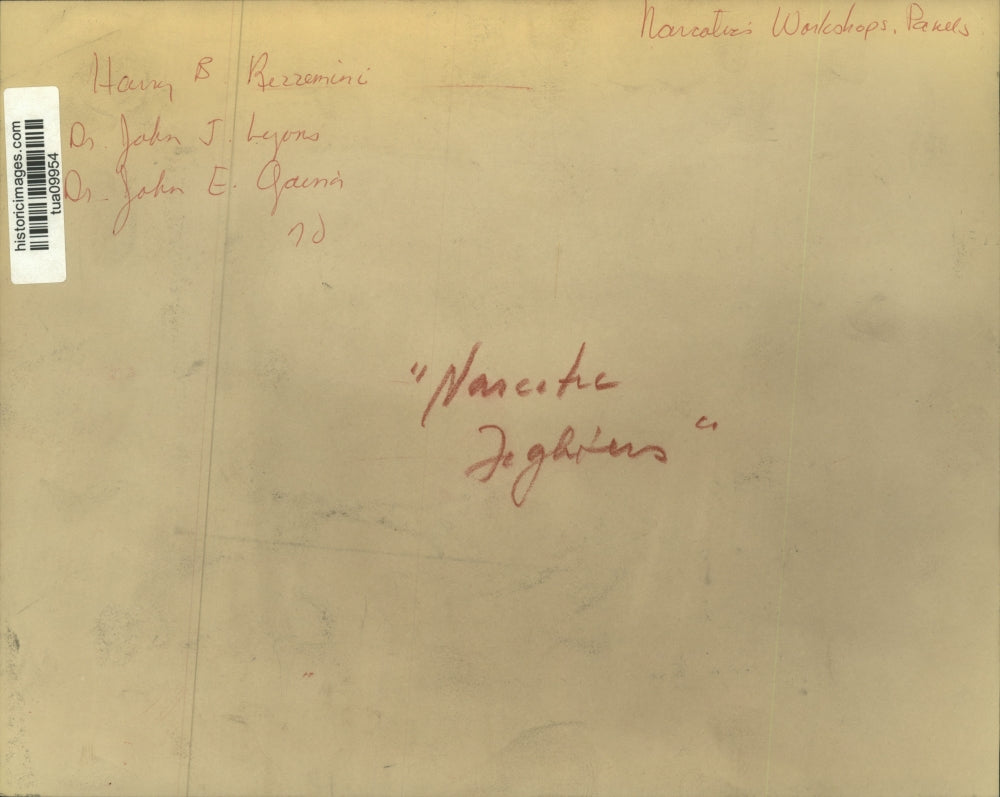 Narcotics Workshops, Panels
Harry B Bezzemini
Dr. John J. Lyons
Dr. John E. 
nd
historicimages.com
tua09954
"Narcotic
Fighters"